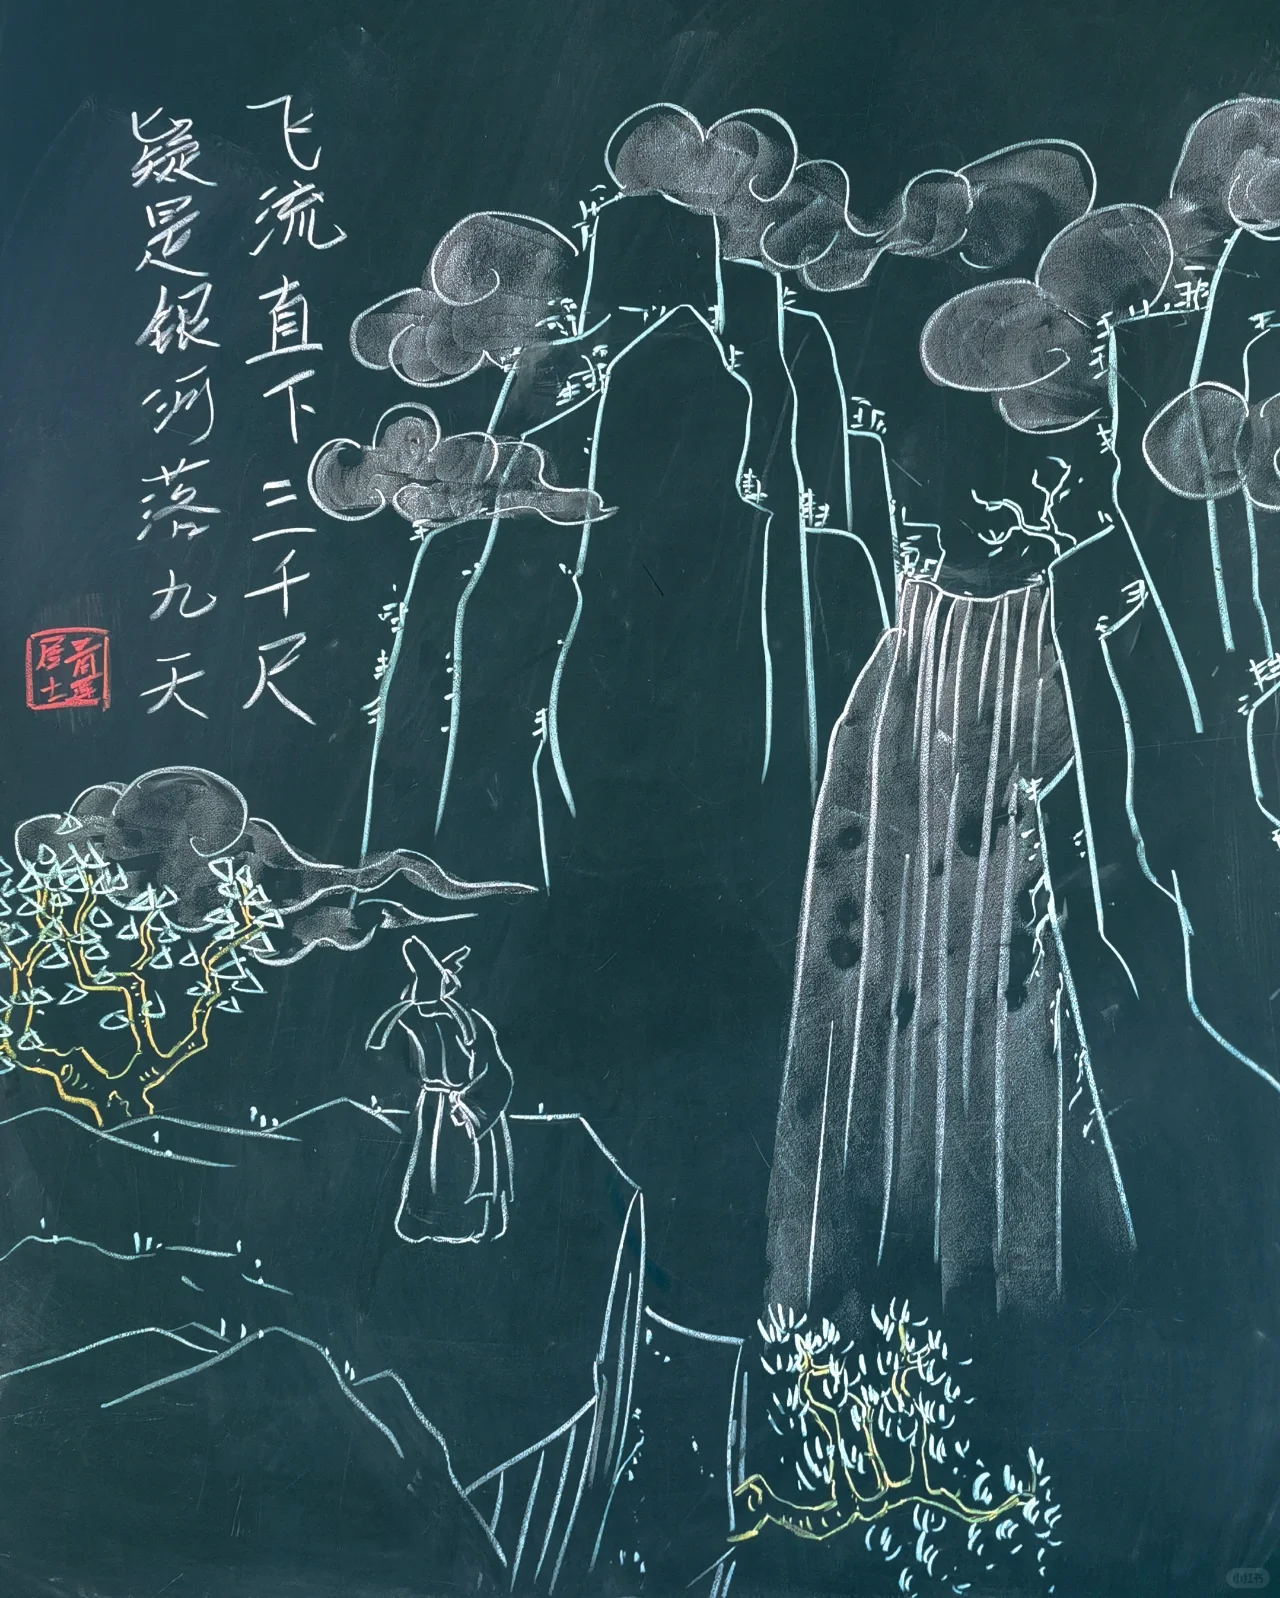 飞流直下三千尺
疑是银河落九天
青莲居士
小红书